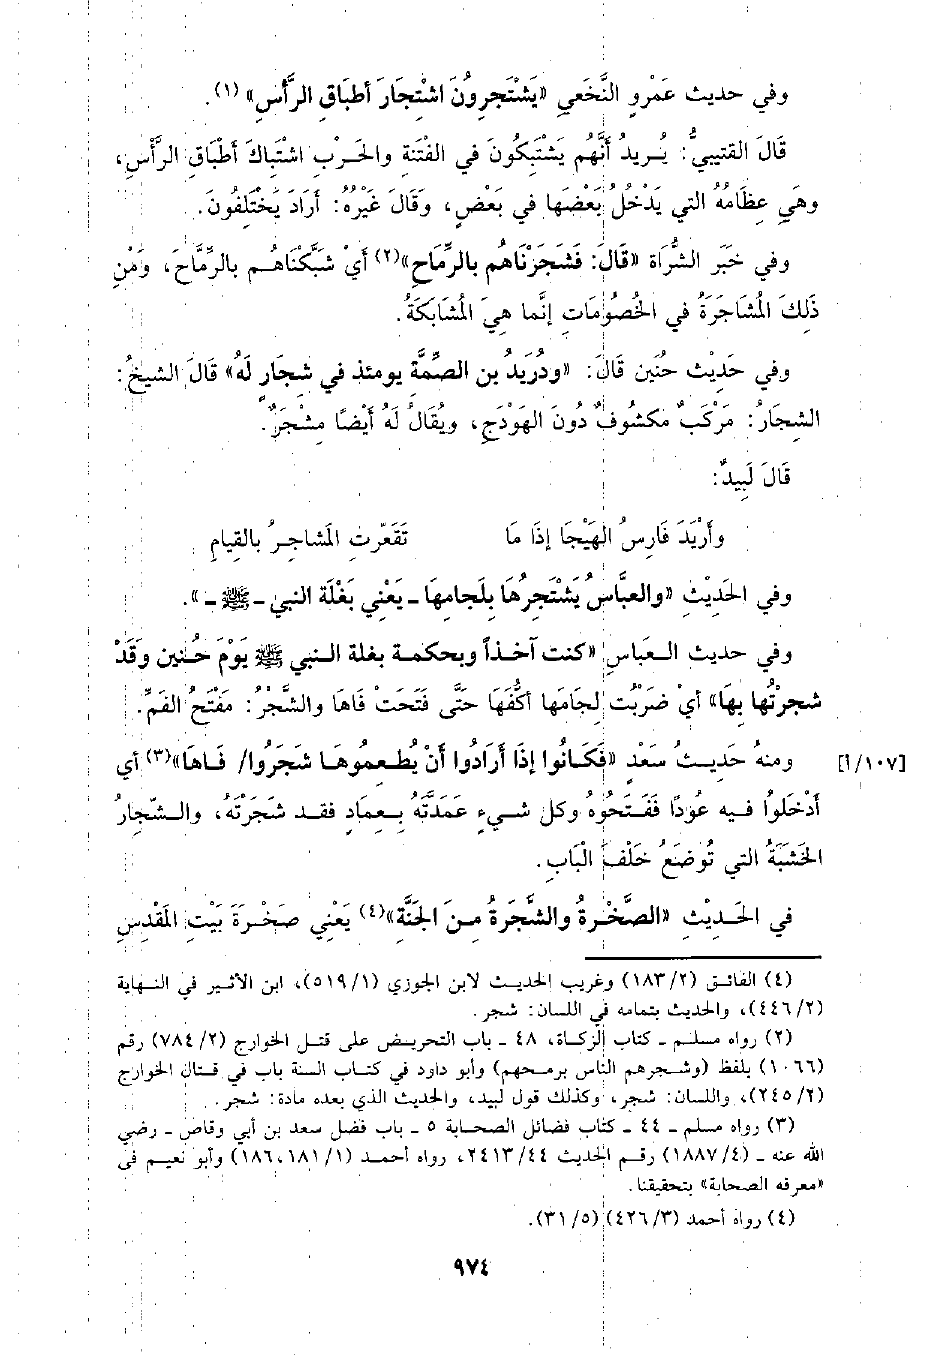 وفي حديث عَمْرو النَّخَعي «يَشْتَجِرونَ اشْتِجَارَ أطبَاقِ الرَّأس» (١).
قَالَ القتيبيُّ: يُريدُ أنَّهُم يَشْتَبِكُونَ في الفتنة والحَرْبِ اشتْبَاكَ أطْبَاقِ الرَّأْس،
وهَي عِظَامُهُ التي يَدْخُلُ بَعْضهَا في بَعْض، وَقَالَ غَيْرهُ: أرَادَ يَخْتَلِفُونَ.
وفي خَبَر الشُّرَاة «قَالَ: فَشَجَرْنَاهُم بالرِّمَاحِ»(٢) أيْ شَبَّكْنَاهُم بالرِّمَاحَ، وَمْنِ
ذَلِكَ المُشَاجَرَةُ في الخصُومَاتِ إنَّما هِيَ المُشَابَكَةُ.
وفي حَدِيْث حنُين قَالَ: «ودُرَيدُ بن الصِّمَّة يومئذ في شجارٍ لَهُ» قَالَ الشيخُ:
الشجَارُ: مَرْكَبٌ مكشُوفٌ دُونَ الهَوْدَجِ، ويُقَالُ لَهُ أيْضًا مشْجَرٌ.
قَالَ لَبِيدٌ:
وأرْبَدَ فَارِسُ الهَيْجَا إذَا مَا تَقَعَّرتِ المَشاجرُ بالقيامِ
وفي الحَدِيْث «والعبَّاسُ يُشْتَجِرُهَا بِلَجامِهَا ـ يَعْنِي بَغْلَة النبي ـ ﷺ ـ».
وفي حديث العَبَاسِ «كنت آخذاً وبحكمة بغلة النبي ﷺ يَوْمَ حُنين وقَدْ
شجرْتُها بِهَا» أيْ ضَرْبُت لِجَامَها أكُفّهَا حَتَّى فَتَحَتْ فَاهَا والشَّجْرُ: مفْتَحُ الفَمِّ.
ومنهُ حَديثُ سَعْدٍ «فَكَانُوا إذَا أرَادُوا أنْ يُطعمُوهَا شَجَرُوا/ فَاهَا»(٣) أي [١٠٧/أ]
أدْخَلُوا فيه عُودًا فَفَتَحُوهُ وكل شيءٍ عَمَدَتَهُ بِعمادٍ فقد شجَرْتَهُ، والشّجارُ
الخَشَبَةُ التي تُوضَعُ خَلْفَ الْبَابِ.
في الحَدِيْثِ «الصَّخْرةُ والشَّجَرَةُ منَ الجَنَّة»(٤) يَعْنِي صَخْرَةَ بَيْتِ المَقْدسِ
(٤) الفائق (١٨٣/٢) وغريب الحديث لابن الجوزي (٥١٩/١)، ابن الأثير في النهاية
(٤٤٦/٢)، والحديث بتمامه في اللسان: شجر.
(٢) رواه مسلم ـ كتاب الزكاة، ٤٨ ـ باب التحريض على قتل الخوارج (٧٨٤/٢) رقم
(١٠٦٦) بلفظ (وشجرهم الناس برمحهم) وأبو داود في كتاب السنة باب في قتال الخوارج
(٢٤٥/٢)، واللسان: شجر، وكذلك قول لبيد، والحديث الذي بعده مادة: شجر.
(٣) رواه مسلم ـ ٤٤ ـ كتاب فضائل الصحابة ٥ ـ باب فضل سعد بن أبي وقاص ـ رضي
الله عنه ـ (١٨٨٧/٤) رقم الحديث ٢٤١٣/٤٤، رواه أحمد (١٨١/١، ١٨٦) وأبو نعيم في
«معرفه الصحابة» بتحقيقنا.
(٤) رواه أحمد (٤٢٦/٣) (٣١/٥).
٩٧٤